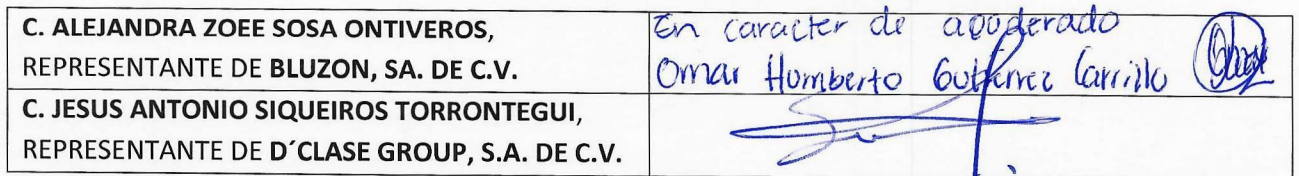 C. ALEJANDRA ZOEE SOSA ONTIVEROS,
REPRESENTANTE DE BLUZON, SA. DE C.V.
En caracter de apoderado
Omar Humberto Gutierrez Carrillo
C. JESUS ANTONIO SIQUEIROS TORRONTEGUI,
REPRESENTANTE DE D´CLASE GROUP, S.A. DE C.V.